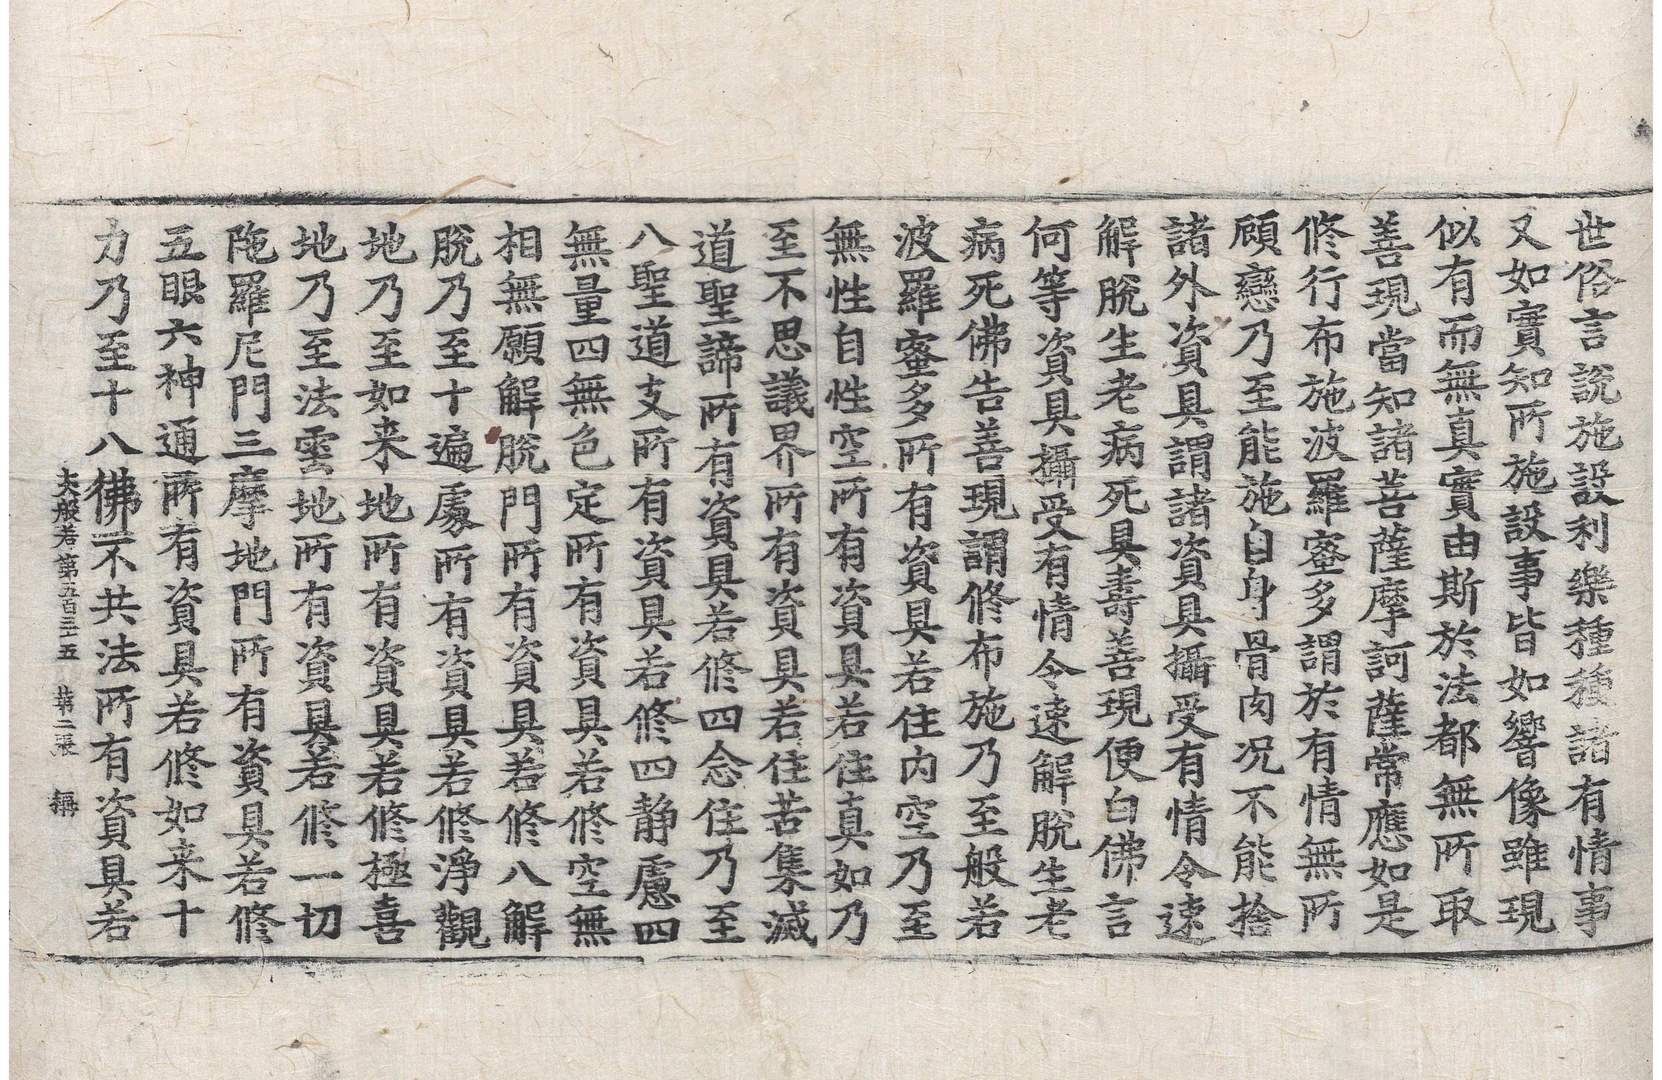 世俗言說施設利樂種種諸有情事
又如實知所施設事皆如響像雖現
似有而無真實由斯於法都無所取
善現當知諸菩薩摩訶薩常應如是
修行布施波羅蜜多謂於有情無所
顧戀乃至能施自身骨肉况不能捨
諸外資具謂諸資具攝受有情令速
解脫生老病死具壽善現便白佛言
何等資具攝受有情令速解脫生老
病死佛告善現謂修布施乃至般若
波羅蜜多所有資具若住內空乃至
無性自性空所有資具若住真如乃
至不思議界所有資具若住苦集滅
道聖諦所有資具若修四念住乃至
八聖道支所有資具若修四静慮四
無量四無色定所有資具若修空無
相無願解脫門所有資具若修八解
脫乃至十遍處所有資具若修淨觀
地乃至如来地所有資具若修極喜
地乃至法雲地所有資具若修一切
陁羅尼門三摩地門所有資具若修
五眼六神通所有資具若修如来十
力乃至十八佛不共法所有資具若
大般若第五百三十五 第二張 稱